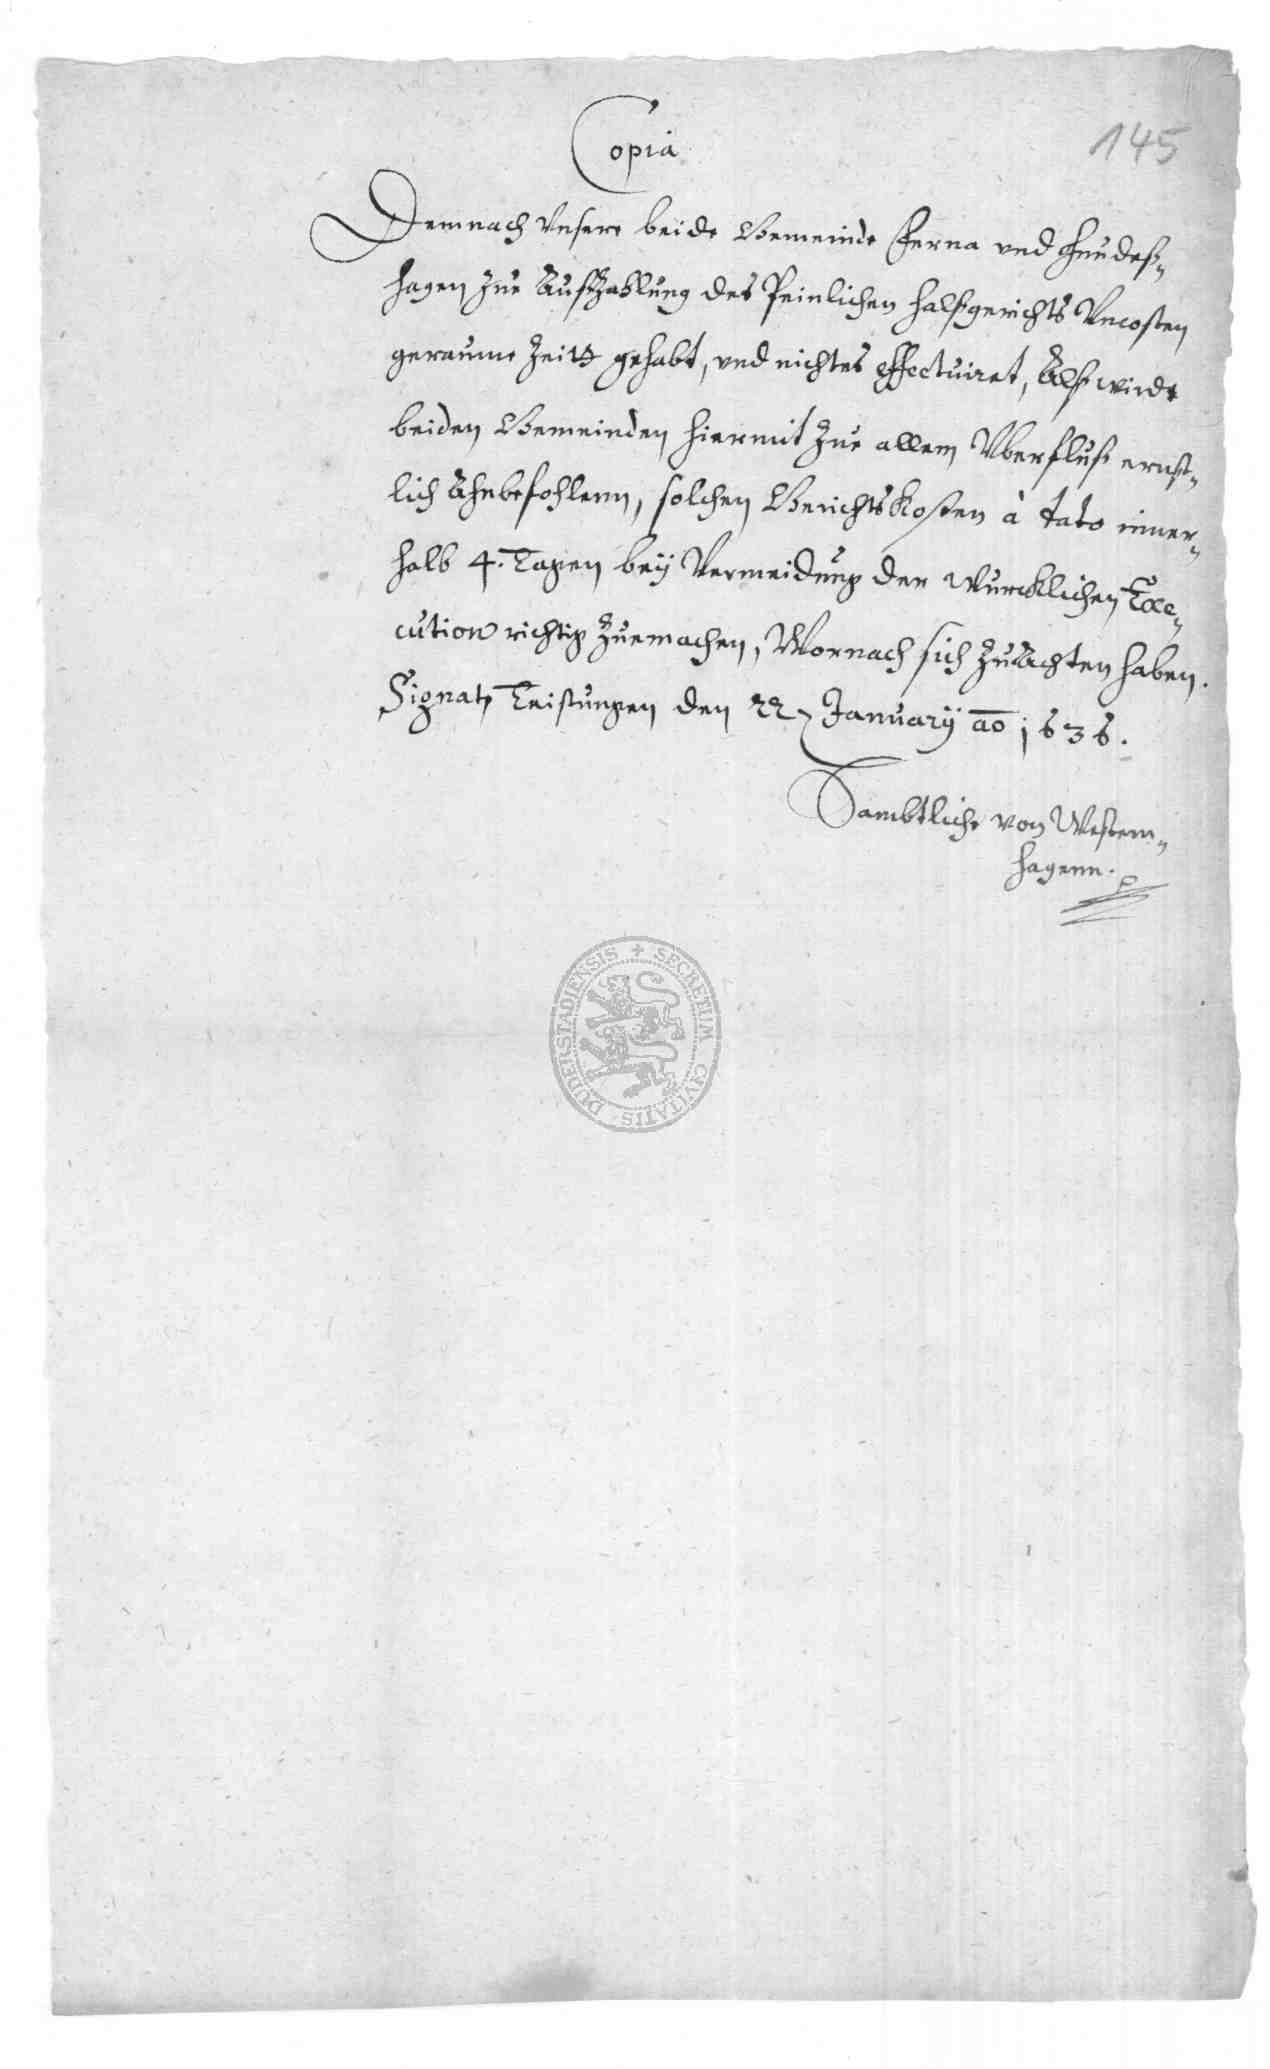 Copia
145
Demnach Unsere beide Gemeinde Ferna und Hundeß=
hagen zue Außzahlung des Peinlichen halßgerichts Uncosten
geraume Zeitt gehabt, und nichtes effectuiret, Alß wirdt
beiden Gemeinden hiermit zue allem Uberfluß ernst=
lich Ahnbefohlenn, solchen Gerichts Kosten à dato inner=
halb 4. Tagen beÿ Vermeidung der wurcklichen Exe=
cution richtig zuemachen, Wornach sich zu Achten haben.
Signat. Teistungen den 22 Januarÿ ao 1636.
Sambtliche von Western=
hagenn.
SECRETUM CIVITATIS DUDERSTADIENSIS